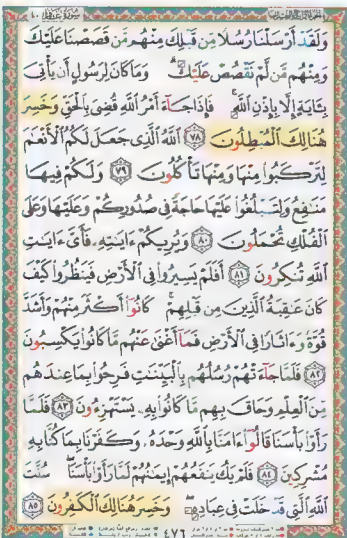 وَلَقَدْ أَرْسَلْنَا رُسُلًا مِّن قَبْلِكَ مِنْهُم مَّن قَصَصْنَا عَلَيْكَ
وَمِنْهُم مَّن لَّمْ نَقْصُصْ عَلَيْكَ ۗ وَمَا كَانَ لِرَسُولٍ أَن يَأْتِيَ
بِـَٔايَةٍ إِلَّا بِإِذْنِ ٱللَّهِ ۚ فَإِذَا جَآءَ أَمْرُ ٱللَّهِ قُضِيَ بِٱلْحَقِّ وَخَسِرَ
هُنَالِكَ ٱلْمُبْطِلُونَ ٧٨ ٱللَّهُ ٱلَّذِى جَعَلَ لَكُمُ ٱلْأَنْعَٰمَ
لِتَرْكَبُوا۟ مِنْهَا وَمِنْهَا تَأْكُلُونَ ٧٩ وَلَكُمْ فِيهَا
مَنَٰفِعُ وَلِتَبْلُغُوا۟ عَلَيْهَا حَاجَةً فِى صُدُورِكُمْ وَعَلَيْهَا وَعَلَى
ٱلْفُلْكِ تُحْمَلُونَ ٨٠ وَيُرِيكُمْ ءَايَٰتِهِۦ فَأَىَّ ءَايَٰتِ
ٱللَّهِ تُنكِرُونَ ٨١ أَفَلَمْ يَسِيرُوا۟ فِى ٱلْأَرْضِ فَيَنظُرُوا۟ كَيْفَ
كَانَ عَٰقِبَةُ ٱلَّذِينَ مِن قَبْلِهِمْ ۚ كَانُوٓا۟ أَكْثَرَ مِنْهُمْ وَأَشَدَّ
قُوَّةً وَءَاثَارًا فِى ٱلْأَرْضِ فَمَآ أَغْنَىٰ عَنْهُم مَّا كَانُوا۟ يَكْسِبُونَ
٨٢ فَلَمَّا جَآءَتْهُمْ رُسُلُهُم بِٱلْبَيِّنَٰتِ فَرِحُوا۟ بِمَا عِندَهُم
مِّنَ ٱلْعِلْمِ وَحَاقَ بِهِم مَّا كَانُوا۟ بِهِۦ يَسْتَهْزِءُونَ ٨٣ فَلَمَّا
رَأَوْا۟ بَأْسَنَا قَالُوٓا۟ ءَامَنَّا بِٱللَّهِ وَحْدَهُۥ وَكَفَرْنَا بِمَا كُنَّا بِهِۦ
مُشْرِكِينَ ٨٤ فَلَمْ يَكُ يَنفَعُهُمْ إِيمَٰنُهُمْ لَمَّا رَأَوْا۟ بَأْسَنَا ۖ سُنَّتَ
ٱللَّهِ ٱلَّتِى قَدْ خَلَتْ فِى عِبَادِهِۦ ۖ وَخَسِرَ هُنَالِكَ ٱلْكَٰفِرُونَ ٨٥
٤٧٦